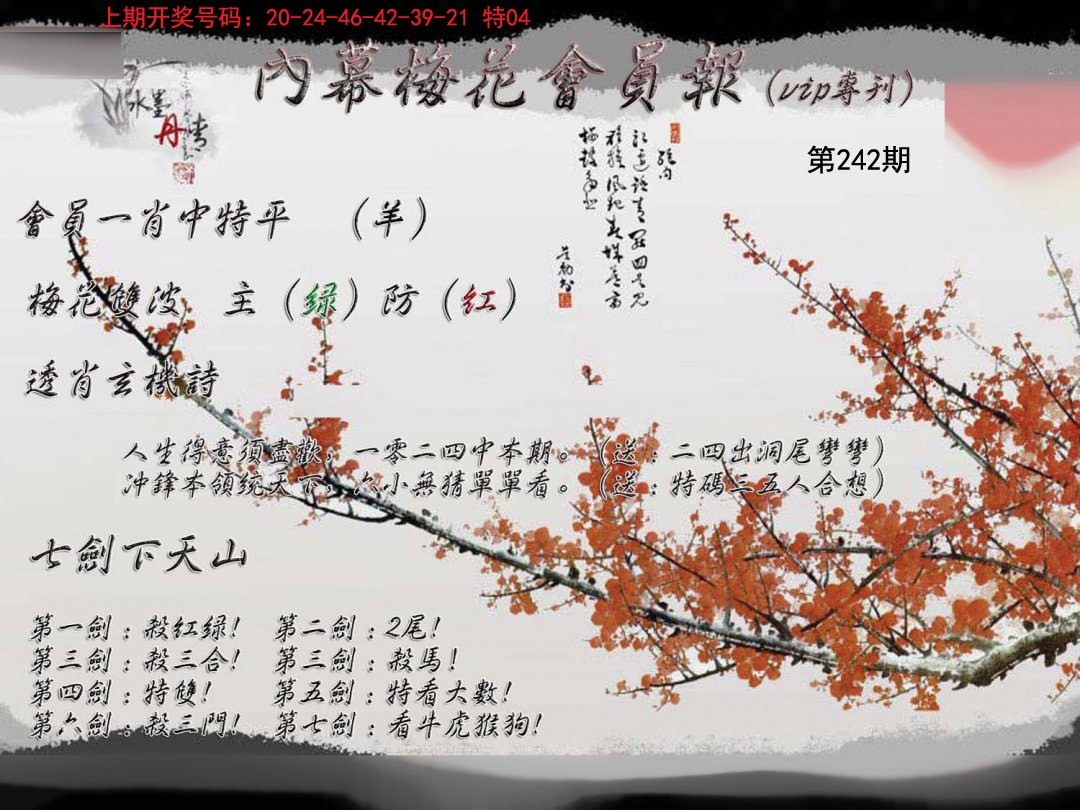 上期开奖号码：20-24-46-42-39-21 特04
內幕梅花會員報（vip專刊）
水墨
丹青
第242期
會員一肖中特平 （羊）
梅花雙波 主（绿）防（红）
透肖玄機詩
人生得意須盡歡，一零二四中本期。（送：二四出洞尾彎彎）
冲鋒本領统天下，六小無猜單單看。（送：特碼三五人合想）
七劍下天山
第一劍：殺红绿！ 第二劍：2尾！
第三劍：殺三合！ 第三劍：殺馬！
第四劍：特雙！ 第五劍：特看大數！
第六劍：殺三門！ 第七劍：看牛虎猴狗！